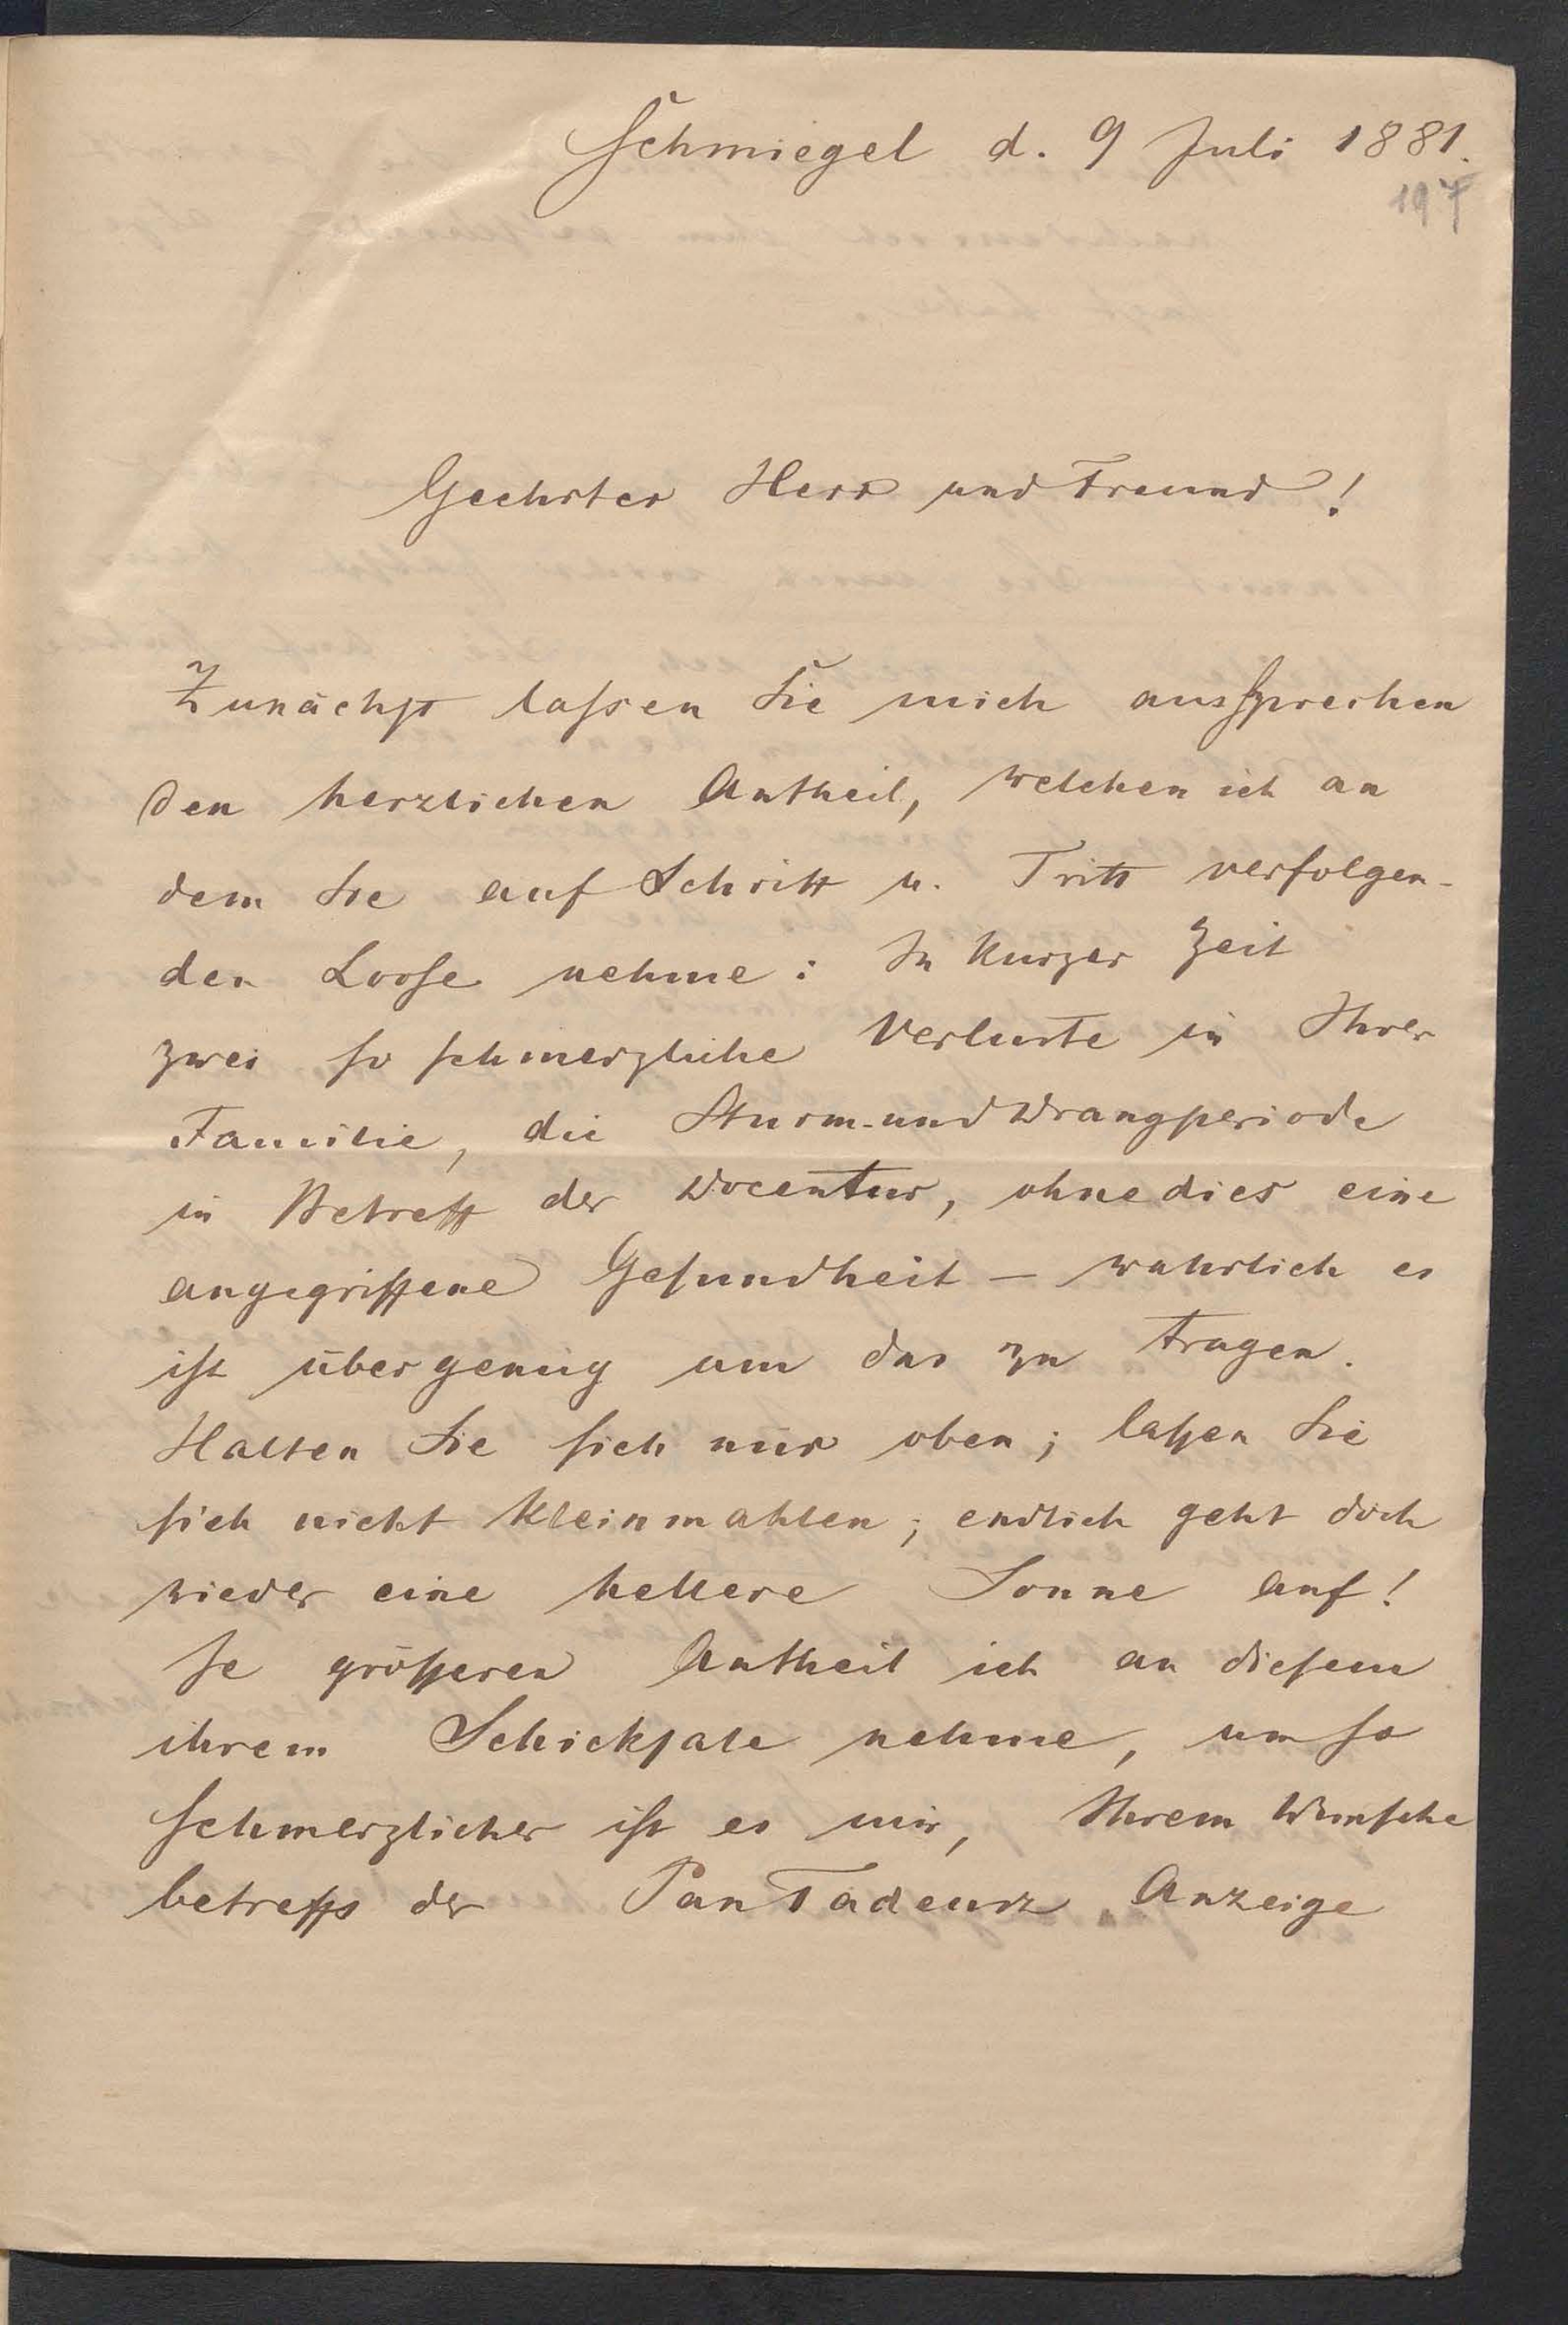 Schmiegel d. 9 Juli 1881.
197
Geehrter Herr und Freund!
Zunächst laſsen Sie mich ausſprechen
den herzlichen Antheil, welchen ich an
dem Sie auf Schritt u. Tritt verfolgen-
den Looſe nehme: In kurzer Zeit
zwei ſo ſchmerzliche Verluste in Ihrer
Familie, die Sturm-und Drangperiode
in Betreff der Docentur, ohnedies eine
angegriffene Geſundheit – wahrlich es
iſt übergenug um das zu tragen.
Halten Sie ſich nur oben; laſsen Sie
ſich nicht kleinmahlen; endlich geht doch
wieder eine hellere Sonne auf!
Je gröſseren Antheil ich an dieſem
ihrem Schickſale nehme, um ſo
ſchmerzlicher iſt es mir, Ihrem Wunſche
betreffs der Pan Tadeusz Anzeige